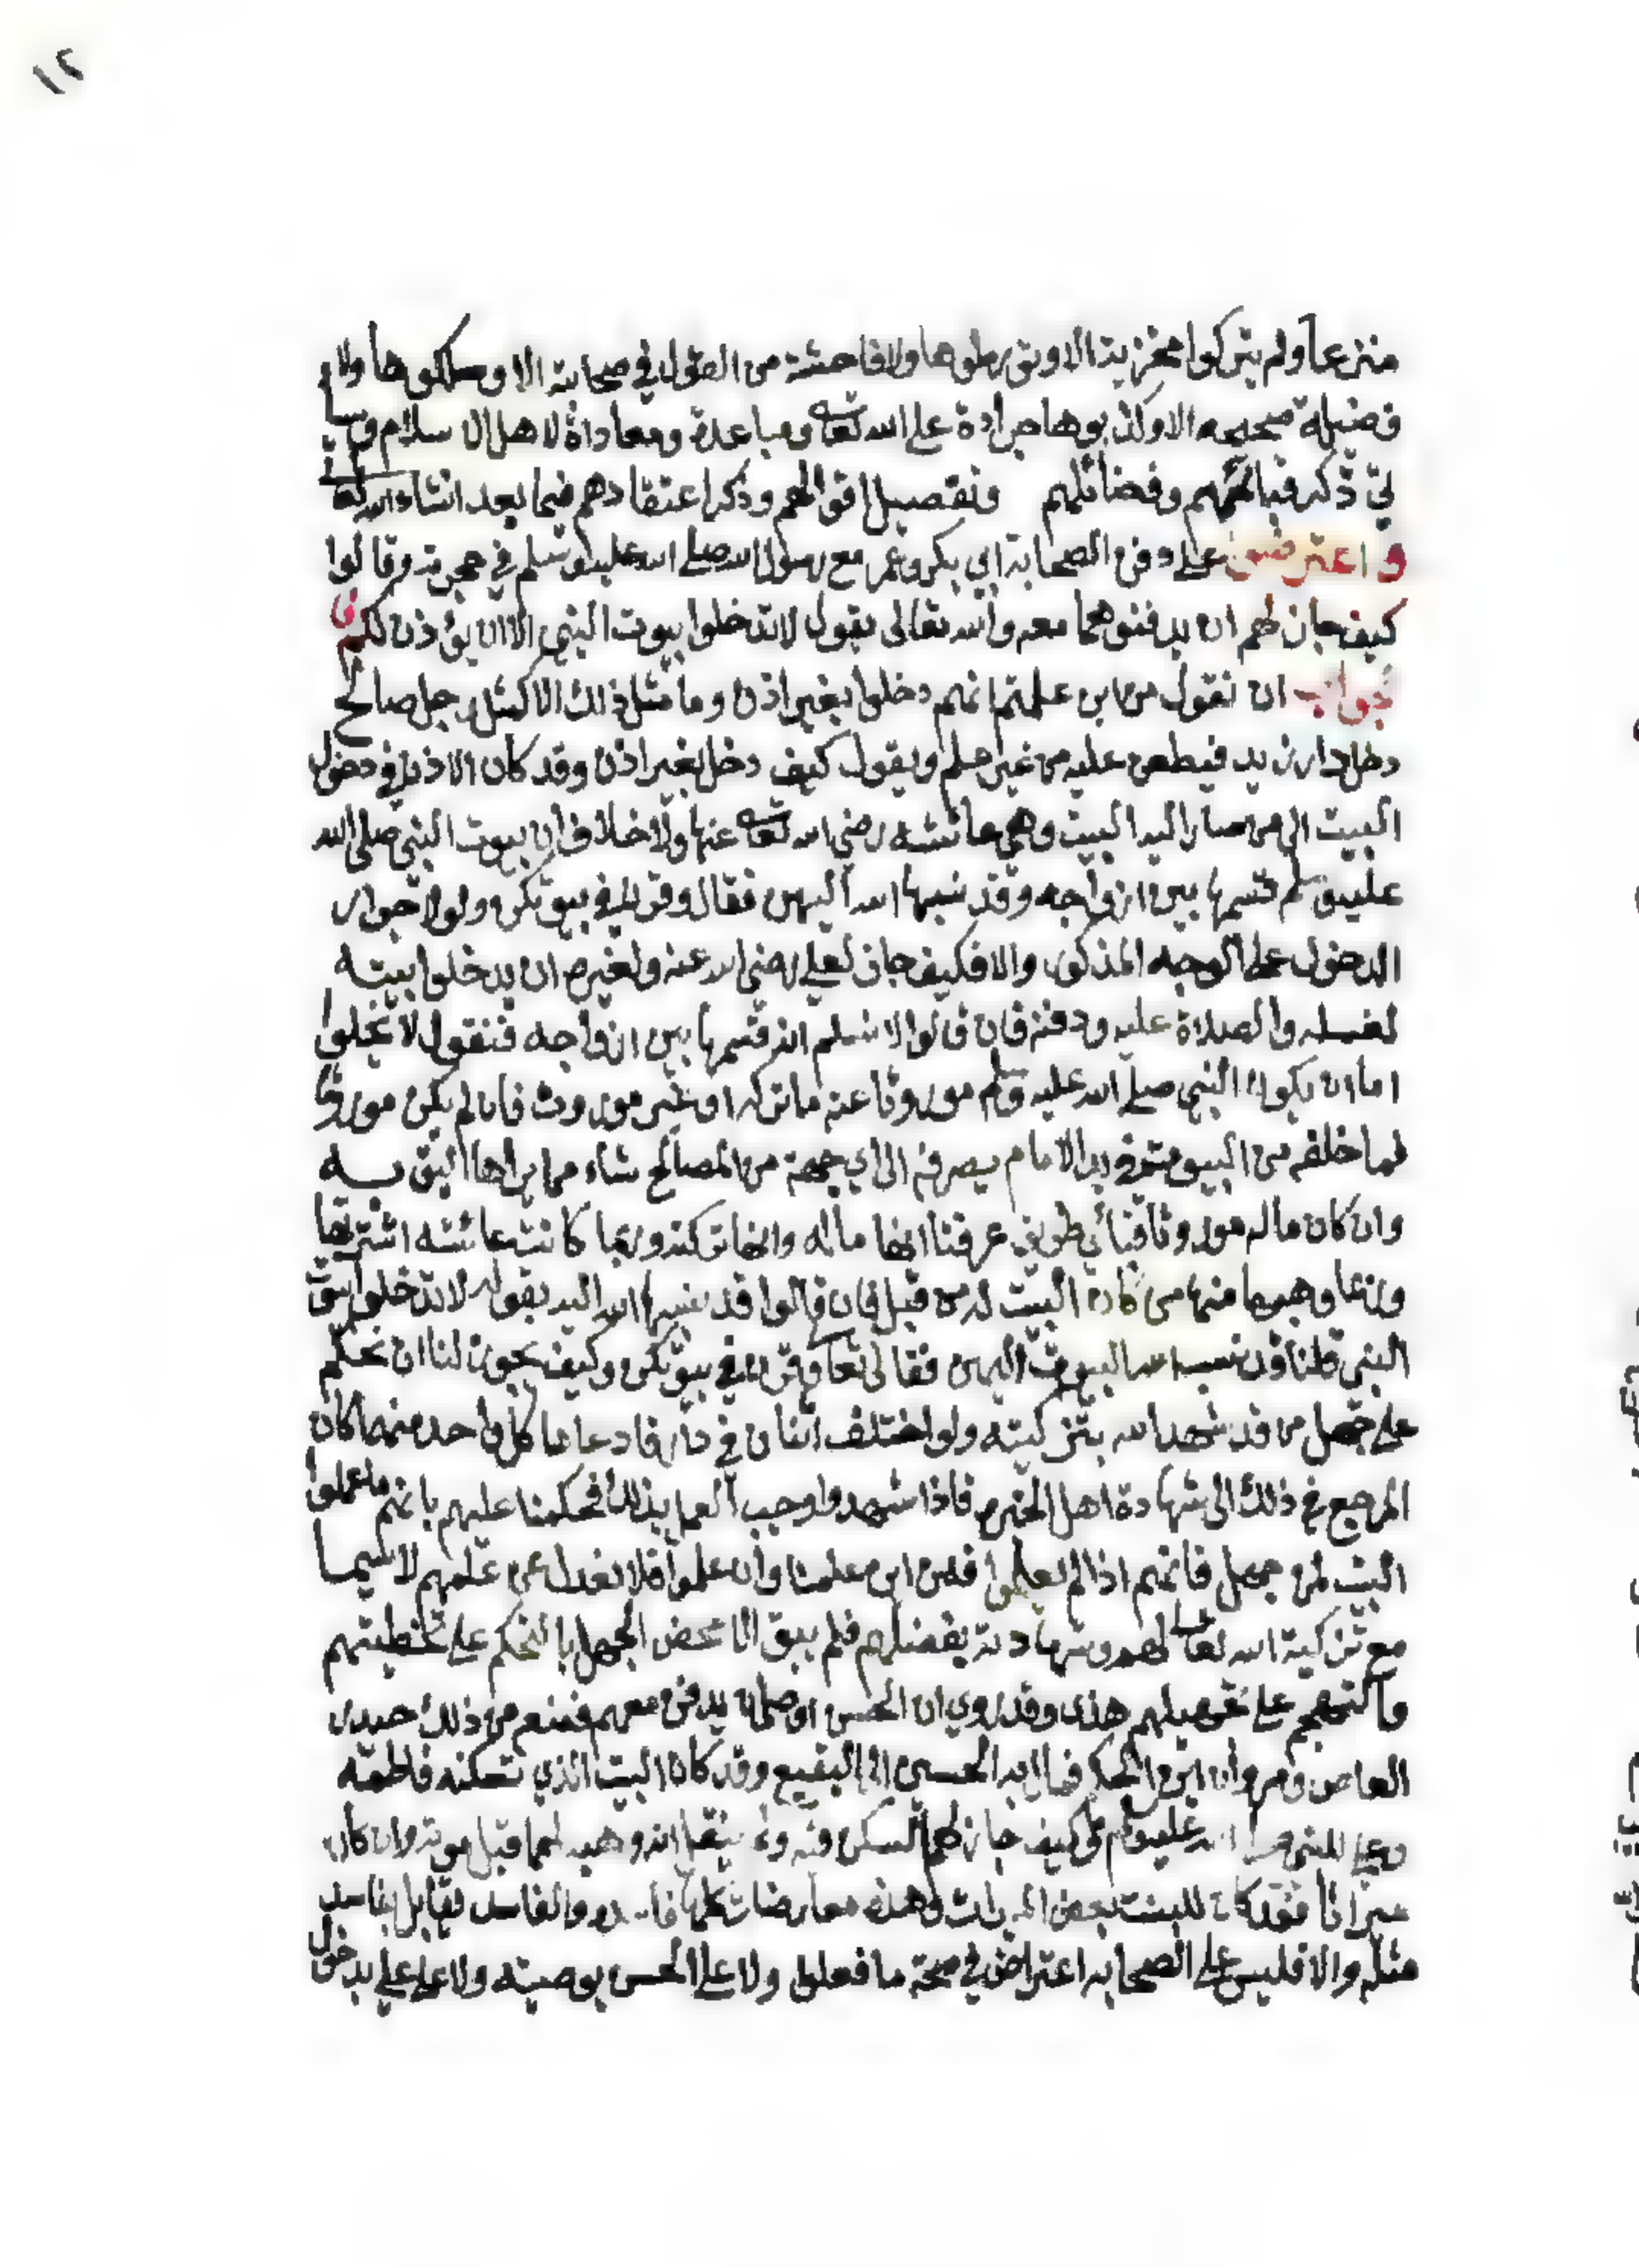 ١٢
منزعا ولم يتركوا مخزية الا وتوصلوها ولا فاحشة من القول في صحابته الا وسلكوها ولا
فضيلة صحيحه الا وكذبوها جرادة على الله تعالى ومباعدة ومعاداة لاهل الاسلام وسيا
تي ذكر قبائحهم وفضائلهم وتفصيل اقوالهم وذكر اعتقادهم فيما بعد انشاء الله تعالى
واعترضوا على دفن الصحابة ابي بكر وعمر مع رسول الله صلى الله عليه وسلم في حجرته وقالوا
كيف جاز لهم ان يدفنوهما معه والله تعالى يقول لاتدخلوا بيوت النبي الا ان يؤذن لكم فا
جواب ان نقول من اين علمتم انهم دخلوا بغير اذن وما مثل ذلك الا كمثل رجل صالح
دخل دار زيد فيطعن عليه من غير علم ويقول كيف دخل بغير اذن وقد كان الاذن في دخول
البيت الى من صار اليه البيت وهي عائشه رضي الله تعالى عنها ولا خلاف ان بيوت النبي صلى الله
عليه وسلم قسمها بين ازواجه وقد نسبها الله اليهن فقال وقرن في بيوتكن ولولا جواز
الدخول على الوجه المذكور والا فكيف جاز لعلي رضي الله عنه ولغيره ان يدخلوا بيته
لغسله والصلاة عليه ودفنه فان قالوا لا نسلم انه قسمها بين ازواجه فنقول لا يخلوا
اما ان يكون النبي صلى الله عليه وسلم موروثا عنه ما تركه او غير موروث فان لم يكن موروثا
فما خلفه من البيوت في يد الامام يصرفه الى اي جهة من المصالح شاء مما يراها اليق به
وان كان ماله موروثا فبأي طريق عرفنا انها ماله وانها تركته وربما كانت عائشه اشترتها
وربما وهبها منها من كان البيت له من قبل فان قالوا قد نسبها الله اليه بقوله لاتدخلوا بيوت
النبي قلنا وقد نسب الله البيوت اليهن فقال تعالى وقرن في بيوتكن وكيف يجوز لنا ان نحكم
على جهل من قد شهد الله بتزكيته ولو اختلف اثنان في دار فادعاها كل واحد منهما كان
المرجع في ذلك الى شهادة اهل الخبره فاذا شهدوا وجب العمل بذلك فحكمنا عليهم بانهم ما علموا
البيت لمن جهل فانهم اذا لم يعلموا فمن اين علمنا وان علموا فلا نعدل عن علمهم لا سيما
مع تزكية الله تعالى لهم وشهادته بفضلهم فلم يبق الا محض الجهل بالتحكم على تخطيتهم
والتهجم على تجهيلهم هذا وقد روي ان الحسن اوصى ان يدفن معهم فمنع من ذلك سعيد بن
العاص ومروان ابن الحكم فمال به الحسين الى البقيع وقد كان البيت الذي تسكنه فاطمة
وعلي للنبي صلى الله عليه وسلم فكيف جاز لهما السكن فيه ولم ينقل انه وهبه لهما قبل موته وان كان
ميراثا فقد كان للبنت بعض الميراث وهذه معارضات كلها فاسده والفاسد يقابل بفاسد
مثله والا فليس على الصحابه اعتراض في صحة ما فعلوا ولا على الحسن بوصيته ولا على علي بدخول